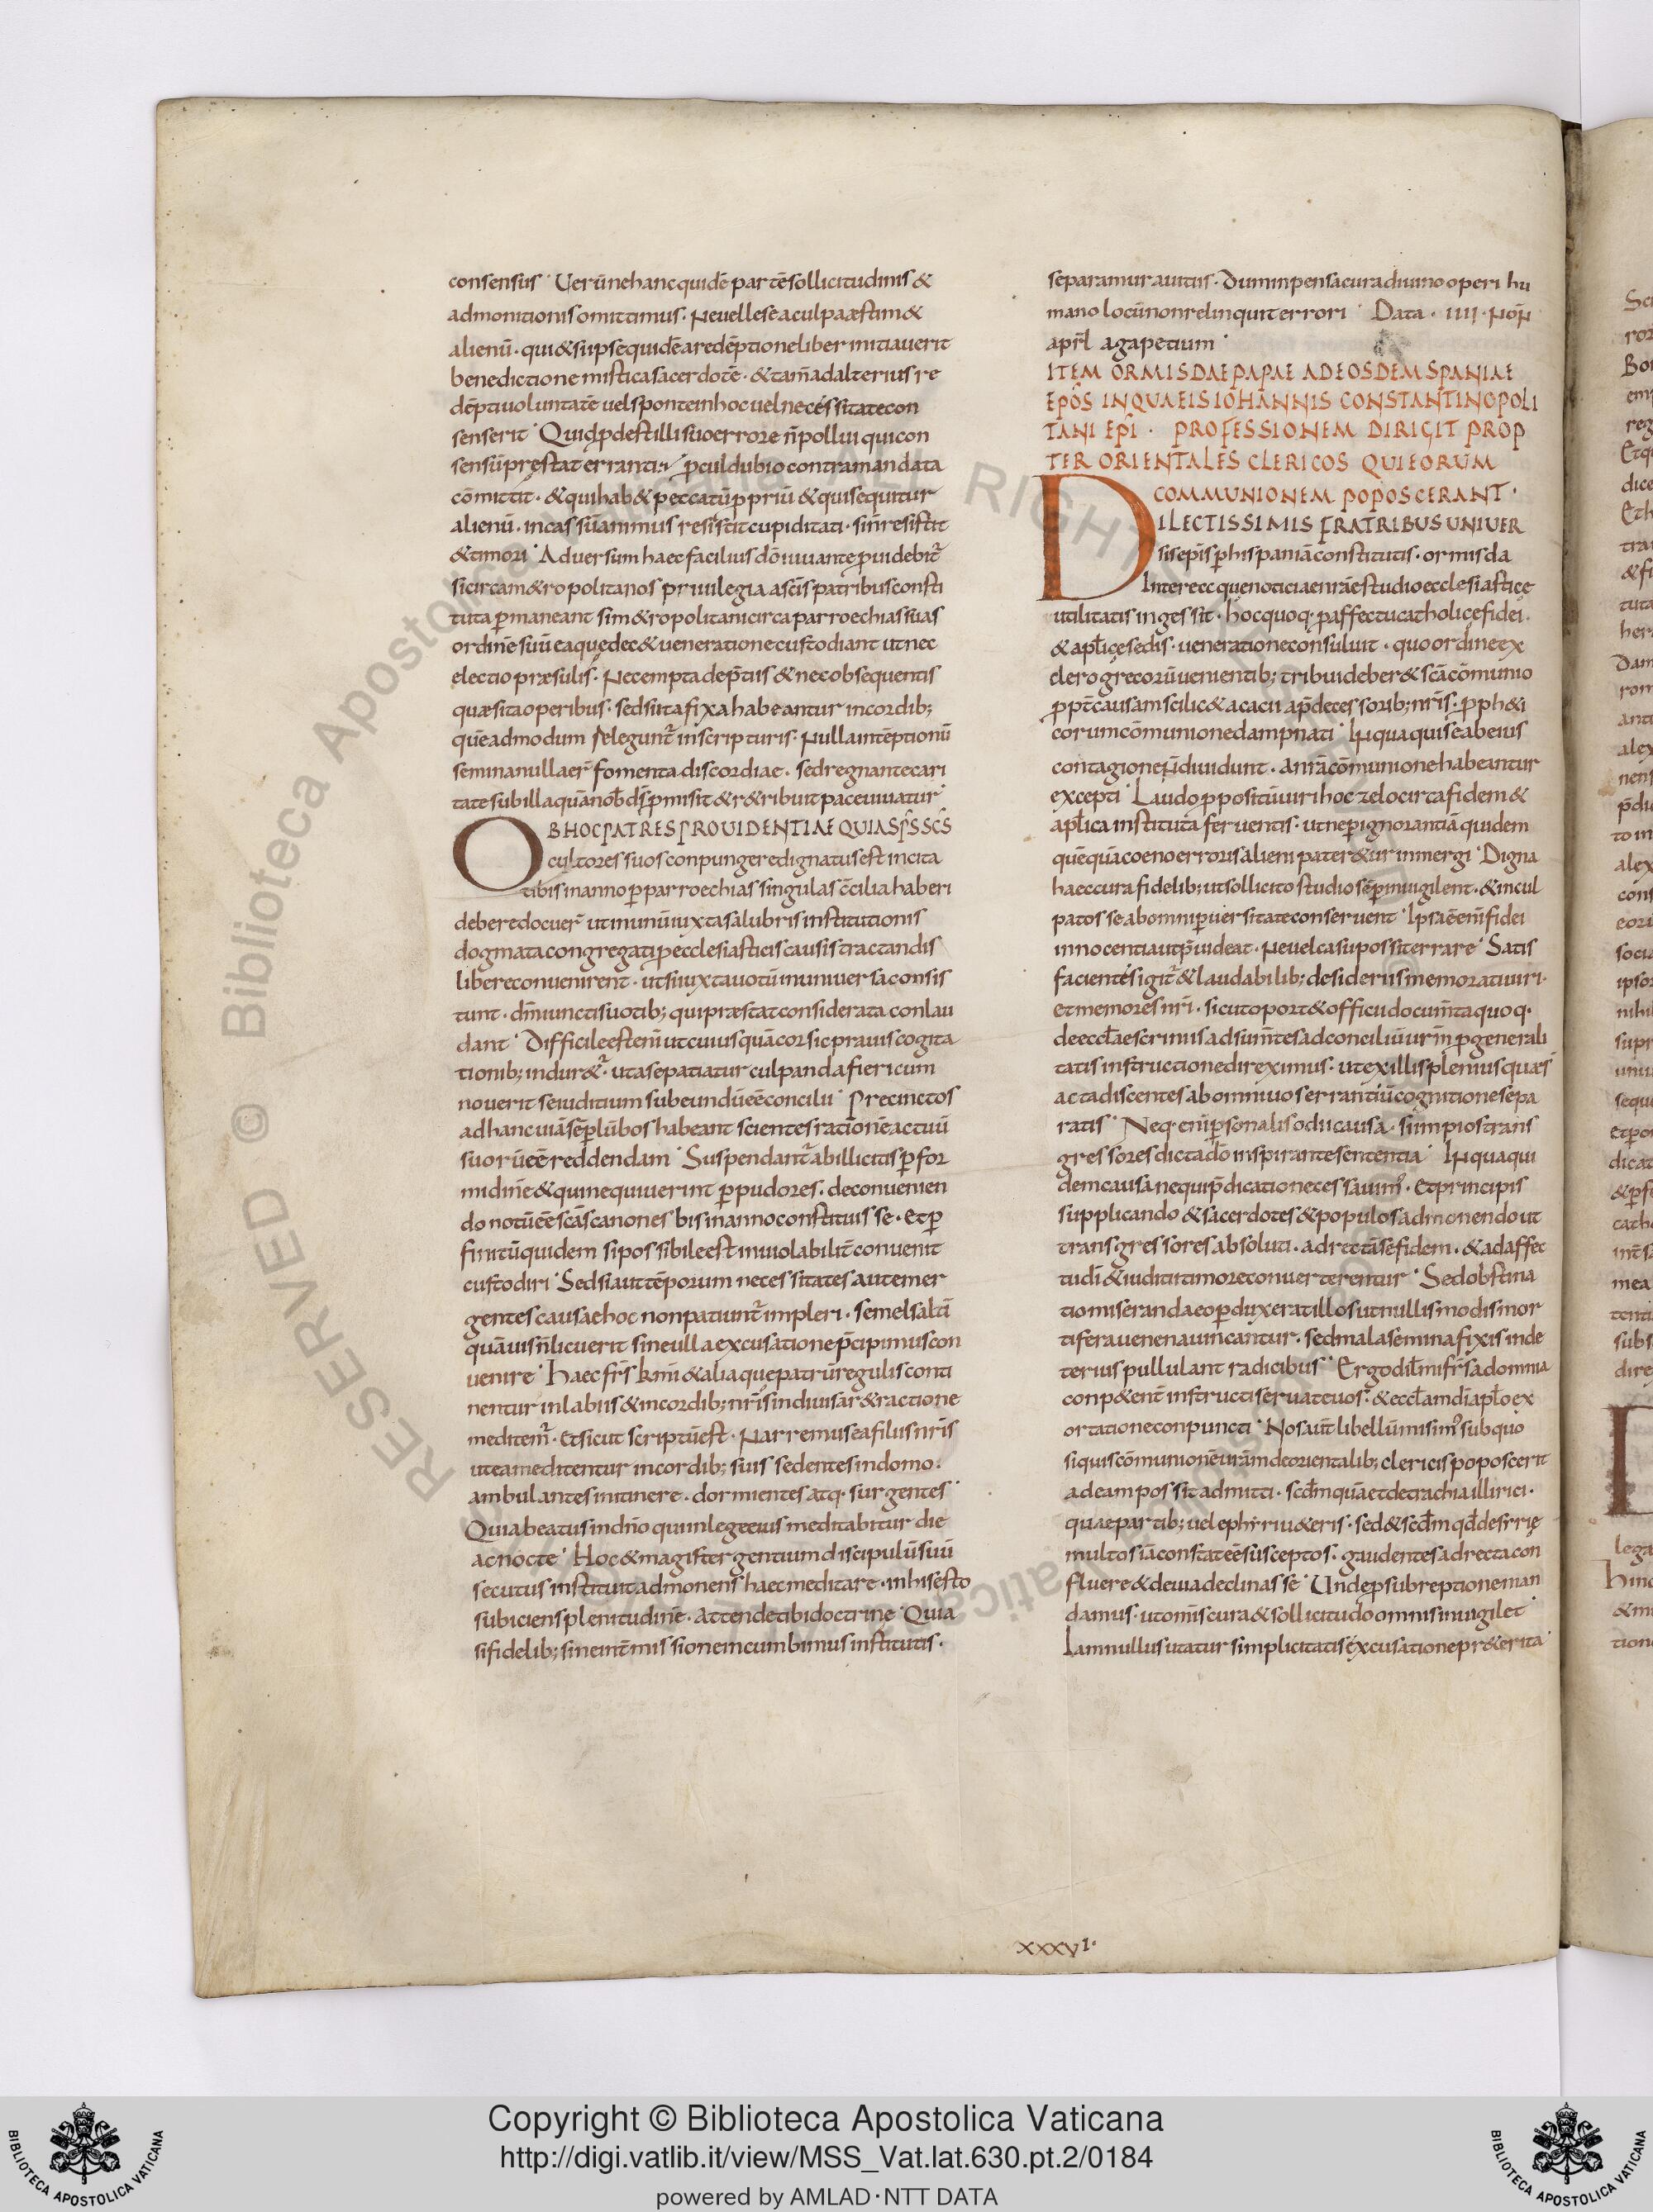 consensus · Uerū nehanc quidē partē sollicitudinis &
admonitionis omittimus · Ne uel lese a culpa æstim&
alienū · qui & si ipse quidē a redēptione liber initiauerit
benedictione mistica sacerdotē · & tam̄ ad alterius re
dēpti uoluntatē uel sponte in hoc uel necessitate con
senserit · Quid ꝓdest illi suo errore n̄ pollui qui con
sensū pręstat erranti · ꝓculdubio contra mandata
cōmittit · & qui hab& peccatū ꝓpriū & qui sequitur
alienū · incassū animus resistit cupiditati · si n̄ resistit
& timori · Aduersum haec facilius dō iuuante ꝓuidebit̄
si circa m&ropolitanos priuilegia a scīs patribus consti
tuta ꝑmaneant si m&ropolitani circa parroechias suas
ordinē suū ea quę dec& ueneratione custodiant ut nec
electio præsulis · Nec empta dep̄tiis & nec obsequentis
quæsita operibus · sed si ita fixa habeantur in cordib;
quēadmodum releguntʳ in scripturis · Nulla intēptionū
semina nulla er̄ fomenta discordiae · sed regnante cari
tate sub illa quā nob̄ d̄s ꝓmisit & r&ribuit pace uiuatur ·
OB HOC PATRES PROUIDENTIAE QUIA SP̄S SC̄S
cultores suos conpungere dignatus est incita
tibis in anno ꝑ parroechias singulas c̄cilia haberi
debere docuer̄ ut in unū iuxta salubris institutionis
dogmata congregati ꝓ ecclesiasticis causis tractandis
libere conuenirent · ut si iuxta uotū in uniuersa consis
tunt · dn̄m iunctis uotib; qui præstat considerata conlau
dant · Difficile est enī ut cuiusquā cor sic prauis cogita
tionib; indur&ʳ · uta se patiatur culpanda fieri cum
nouerit se iuditium subeundū eē concilii · Precinctos
ad hanc uiā sēꝑ lūbos habeant scientes rationē actuū
suorū eē reddendam · Suspendantʳ ab illicitis ꝑ for
midinē & qui nequiuerint ꝓ pudores · de conuenien
do notū eē scās canones bis in anno constituisse · Et ꝑ
finitū quidem si possibile est inuiolabilit̄ conuenit
custodiri · Sed si aut tēporum necessitates aut emer
gentes causae hoc non patiuntʳ impleri · semel saltī
quāuis n̄ licuerit sine ulla excusatione p̄cipimus con
uenire · Haec fr̄s km̄i & alia quę patrū regulis conti
nentur in labiis & in cordib; nr̄is indiuisa r& ractione
meditemʳ · Et sicut scriptū est · Narremus ea filiis nr̄is
ut ea meditentur in cordib; suis sedentes in domo ·
ambulantes in itinere · dormientes atq· surgentes ·
Quia beatus in dn̄o qui in lege eius meditabitur die
ac nocte · Hoc & magister gentium discipulū suū
secutus instituit admonens haec meditare · in his esto
subiciens plenitudinē · Attende tibi doctrine · Quia
si fidelib; sine intēmissione incumbimus institutis ·
separamur a uitiis · Dum inpensa cura diuino operi hu
mano locū non relinquit errori · Data · IIII · Noń
april̄ agapetium ·
ITEM ORMISDAE PAPAE AD EOSDEM SPANIAE
EPŌS IN QUA EIS IOHANNIS CONSTANTINOPOLI
TANI EPĪ · PROFESSIONEM DIRIGIT PROP
TER ORIENTALES CLERICOS QUI EORUM
COMMUNIONEM POPOSCERANT ·
DILECTISSIMIS FRATRIBUS UNIUER
sis epīs ꝑ hispaniā constitutis · ormisda
Inter ec̨ quę noticiae nrāe studio ecclesiasticę
utilitatis ingessit · hoc quoq· ꝑ affectu catholicę fidei ·
& apl̄icę sedis · ueneratione consuluit · quo ordinet ex
clero grecorū uenientib; tribui deber& scā cōmunio
ꝓpt̄ causam scilic& acacii ap̄decessorib; nr̄is · ꝓph&i
corum cōmunione dampnati · In qua qui se ab eius
contagione n̄ diuidunt · a nr̄a cōmunione habeantur
excepti · Laudo ꝓpositū uiri hoc zelo circa fidem &
apl̄ica instituta feruentis · ut ne ꝑ ignorantiā quidem
quēquā coeno erroris alieni pater&ur inmergi · Digna
haec cura fidelib; ut sollicito studio sēꝑ inuigilent · & incul
patos se ab omni ꝑuersitate conseruent · Ipsa ē enī fidei
innocentia ut p̄uideat · Ne uel casu possit errare · Satis
facientes igit̄ & laudabilib; desideriis memorati uiri ·
et memores nr̄i · sicut oport& officii documn̄ta quoq·
de eccl̄ae scriniis adsum̄tes ad conciliū urm̄ ꝓ generali
tatis instructione direximus · ut ex illis plenius quæs
acta discentes ab omni uos errantiū cognitione sepa
ratis · Neq· enī ꝑsonalis odii causa · si impios trans
gressores dicta dō inspirante sententia · In qua qui
dem causa nequip̄dicatione cessauimꝰ · Et principis
supplicando & sacerdotes & populos admonendo ut
transgressores absoluti · ad rectā se fidem · & ad affec
tū dī & iuditii timore conuerterentur · Sed obstina
tio miseranda eo ꝑduxerat illos ut nullis modis mor
tifera uenena uincantur · sed mala semina fixis inde
terius pullulant radicibus · Ergo dil̄mi fr̄s ad omnia
conp&ent̄ instructi seruate uos · & eccl̄am dī apl̄o ex
ortatione conpuncti · Nos aut̄ libellū misimꝰ sub quo
si quis cōmunionē uram̄ de orientalib; clericis poposcerit
ad eam possit admitti · scdm̄ quā et de trachia illirici ·
quae partib; uel ephirri u&eris · sed & scdm̄ qd̄ de sirię
multos iā constat eē susceptos · gaudentes ad recta con
fluere & deuia declinasse · Unde ꝑ subreptione man
damus · ut omīs cura & sollicitudo omnis inuigilet ·
Iam nullus utatur simplicitatis excusatione pr&erita
XXXVI·
Copyright © Biblioteca Apostolica Vaticana
http://digi.vatlib.it/view/MSS_Vat.lat.630.pt.2/0184
powered by AMLAD·NTT DATA
BIBLIOTECA APOSTOLICA VATICANA
BIBLIOTECA APOSTOLICA VATICANA